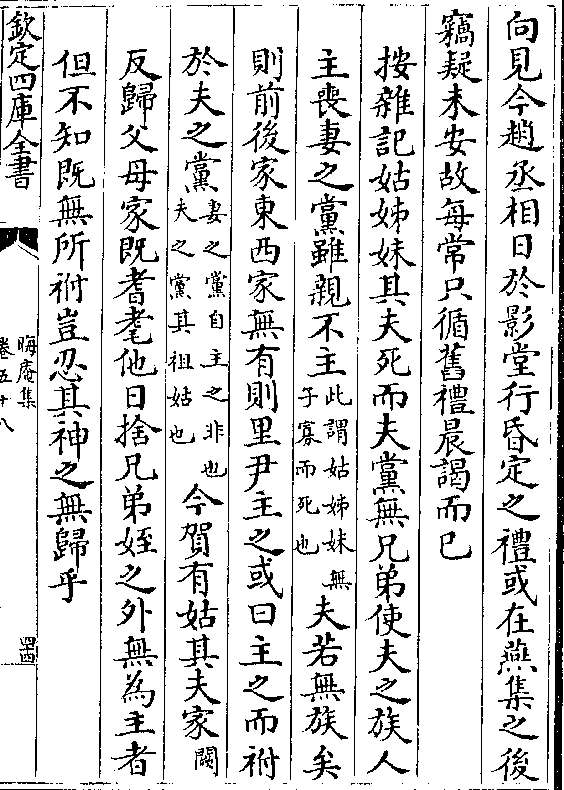 向見今趙丞相日於影堂行昏定之禮或在燕集之後
竊疑未安故每常只循舊禮晨謁而已
按雜記姑姊妹其夫死而夫黨無兄弟使夫之族人
主喪妻之黨雖親不主此謂姑姊妹無子寡而死也夫若無族矣
則前後家東西家無有則里尹主之或曰主之而祔
於夫之黨妻之黨自主之非也夫之黨其祖姑也今賀有姑其夫家闕
反歸父母家既耆耄他日捨兄弟姪之外無為主者
但不知既無所祔豈忍其神之無歸乎
欽定四庫全書
晦庵集
卷五十八